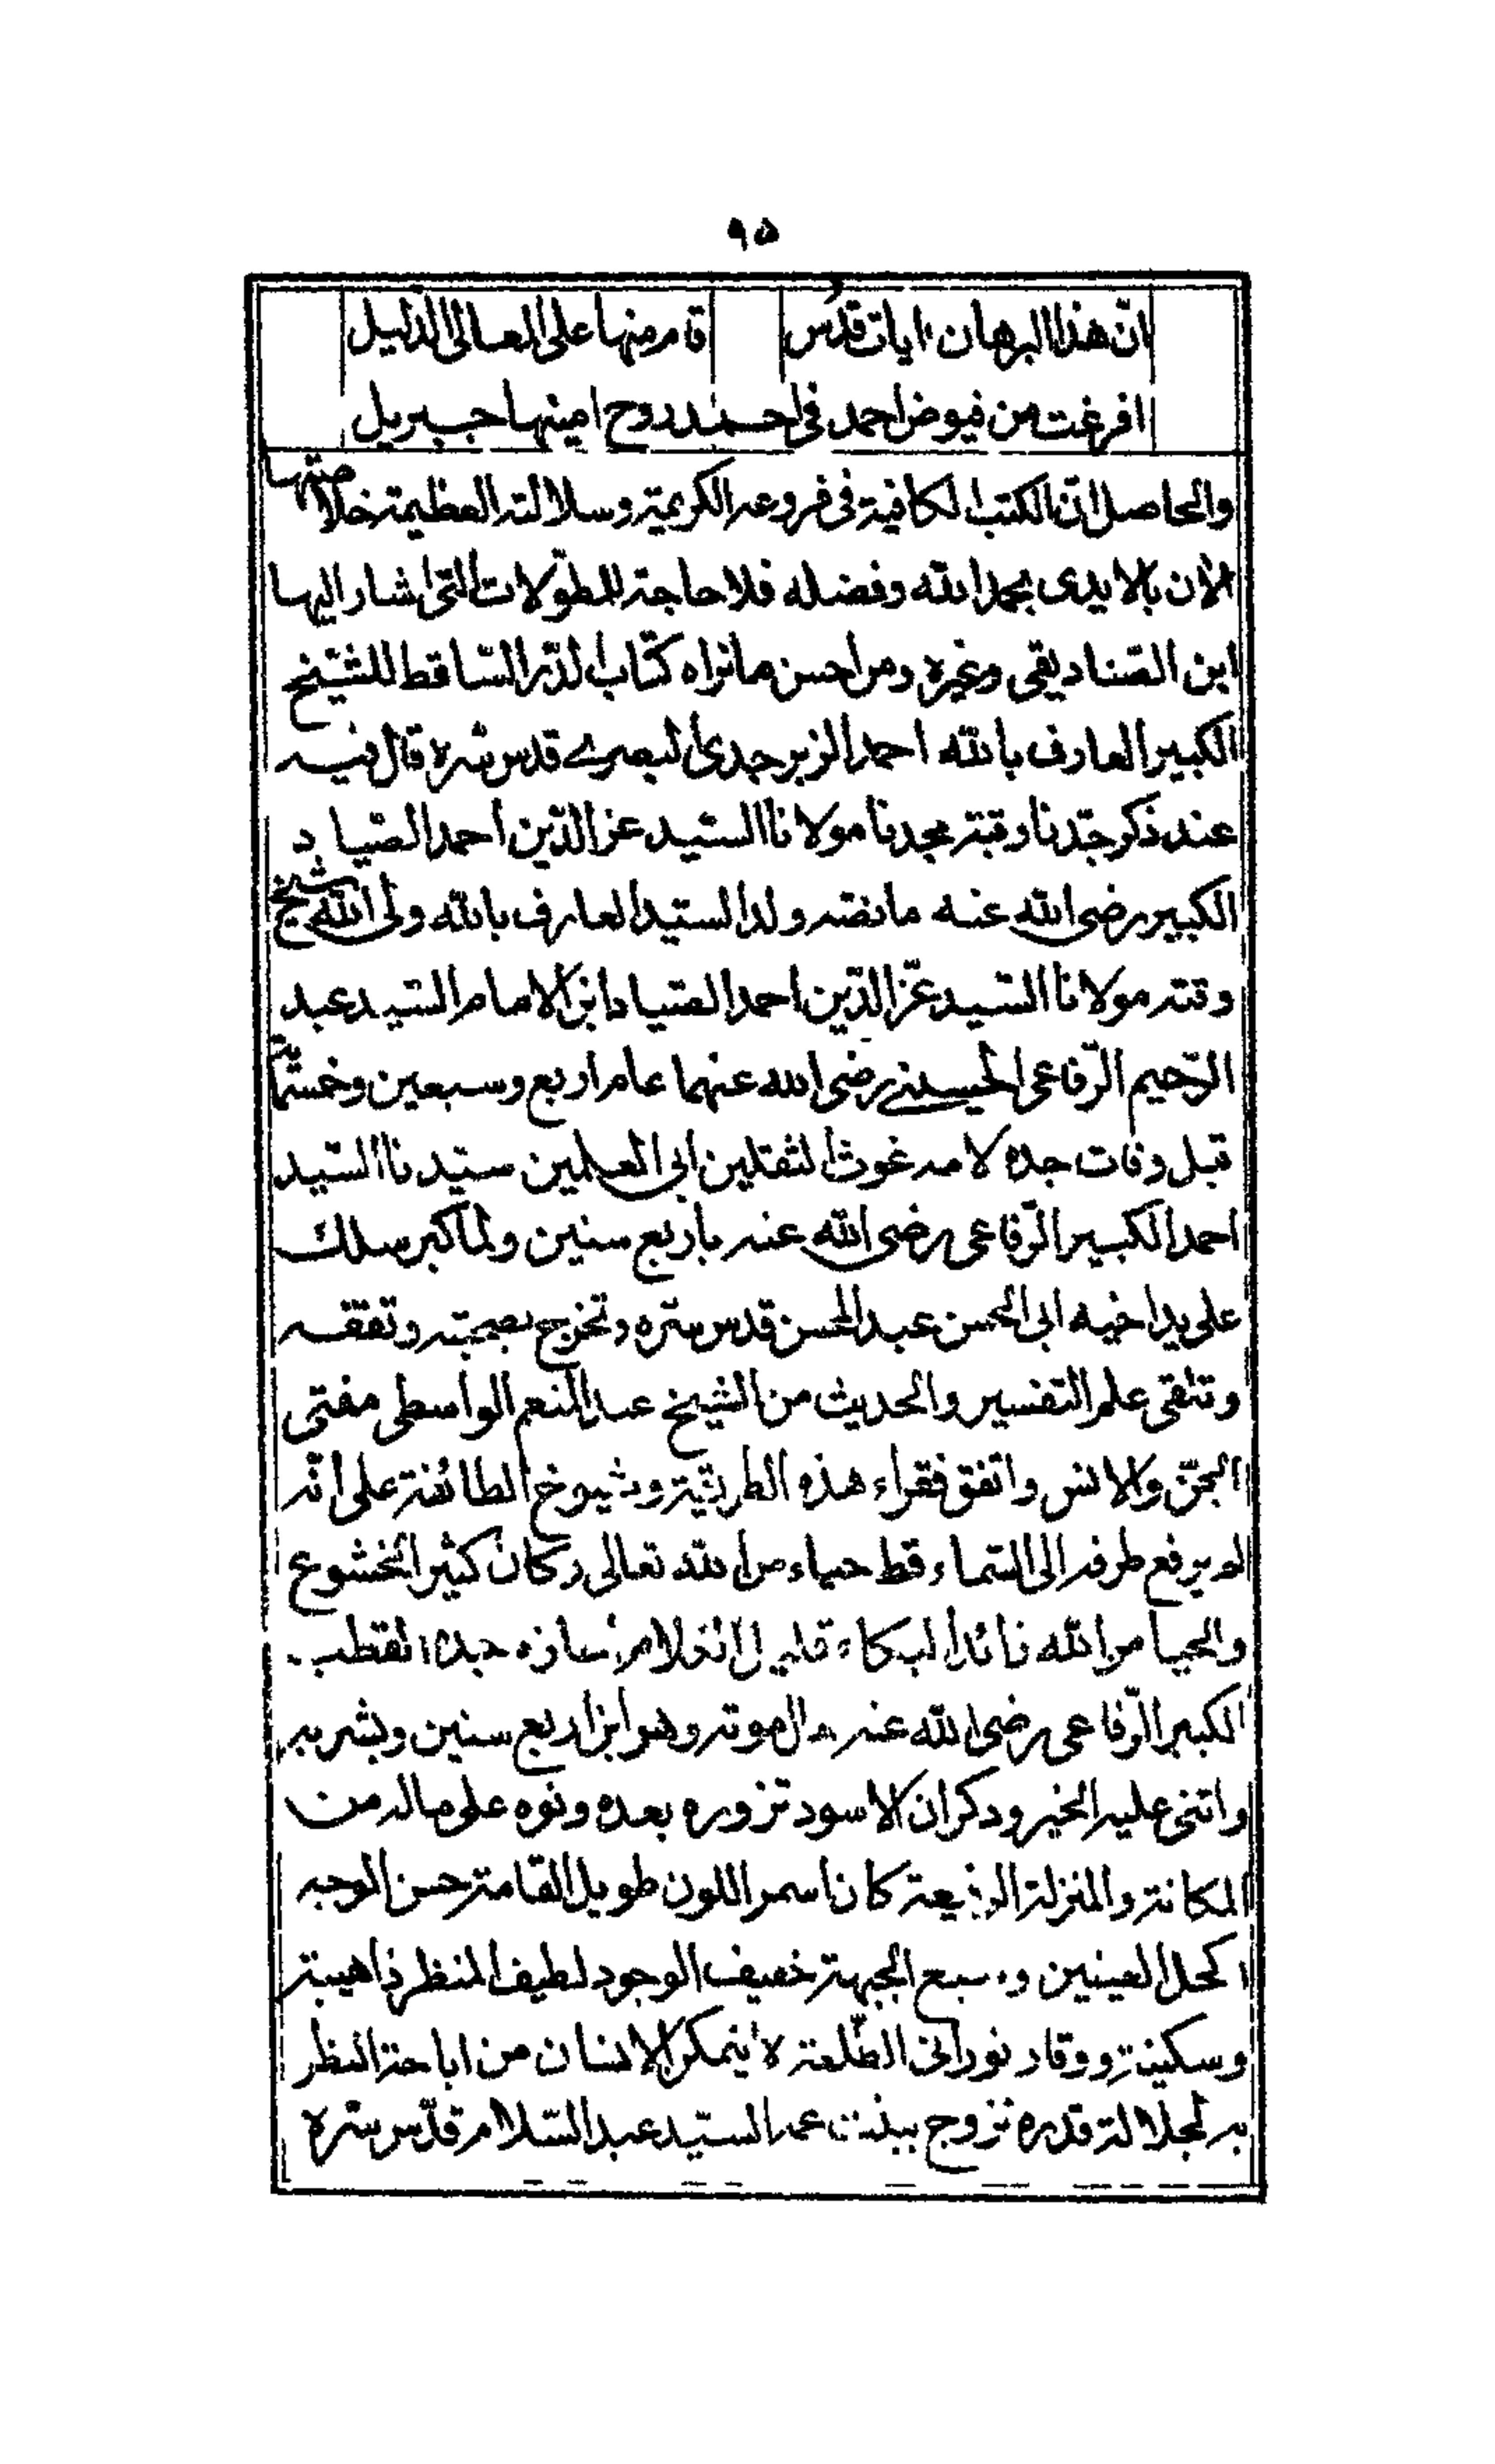 ٩٥
انّ هذا البرهان ايات قدُس قام منها على المعالى الدليل
افرغت من فيوض احمد فى احمد روح امينها جبريل
والحاصل انّ الكتب الكافية فى فروعه الكريمة وسلالته العظيمة خلاصتها
الان بالايدى بحمد الله وفضله فلا حاجة للمطوّلات التى اشار اليها
ابن الصّناديقى وغيره ومن احسن ما نراه كتاب الدّر السّاقط للشّيخ
الكبير العارف بالله احمد الزبرجدى البصرے قدس سّره قال فيه
عند ذكر جدّنا وقبة مجدنا مولانا السّيد عز الدّين احمد الصّياد
الكبير رضى الله عنه ما نصّه ولد السّيد العارف بالله ولى الله شيخ
وقته مولانا السّيد عزّ الدّين احمد الصّياد ابن الامام السّيد عبد
الرّحيم الرّفاعى الحسينے رضى الله عنهما عام اربع وسبعين وخمسمائة
قبل وفات جده لامه غوث الثقلين ابى العلمين سيّدنا السّيد
احمد الكبير الرّفاعى رضى الله عنه باربع سنين ولمّا كبر سلك
على يد اخيه ابى الحسن عبد المحسن قدس سّره وتخرج بصحبته وتفقه
وتلقى علم التفسير والحديث من الشيخ عبد المنعم الواسطى مفتى
الجنّ والانس واتفق فقراء هذه الطريقة وشيوخ الطائفة على انّه
لم يرفع طرفه الى السّماء قط حياء من الله تعالى وكان كثير الخشوع
والحيا من الله زائد البكاء قليل الكلام جده القطب
الكبير الرّفاعى رضى الله عنه حال موته وهو ابن اربع سنين وبشر به
واثنى عليه الخير وذكر ان الاسود تزوره بعده ونوه على ماله من
المكانة والمنزلة الرفيعة كان اسمر اللون طويل القامة حسن الوجه
اكحل العينين وسيع الجبهة خفيف الوجود لطيف المنظر ذا هيبة
وسكينة ووقار نورانى الطّلعة لا يتمكن الانسان من اباحة النظر
به لجلالة قدره تزوج ببنت عمه السّيد عبد السّلام قدّس سّره